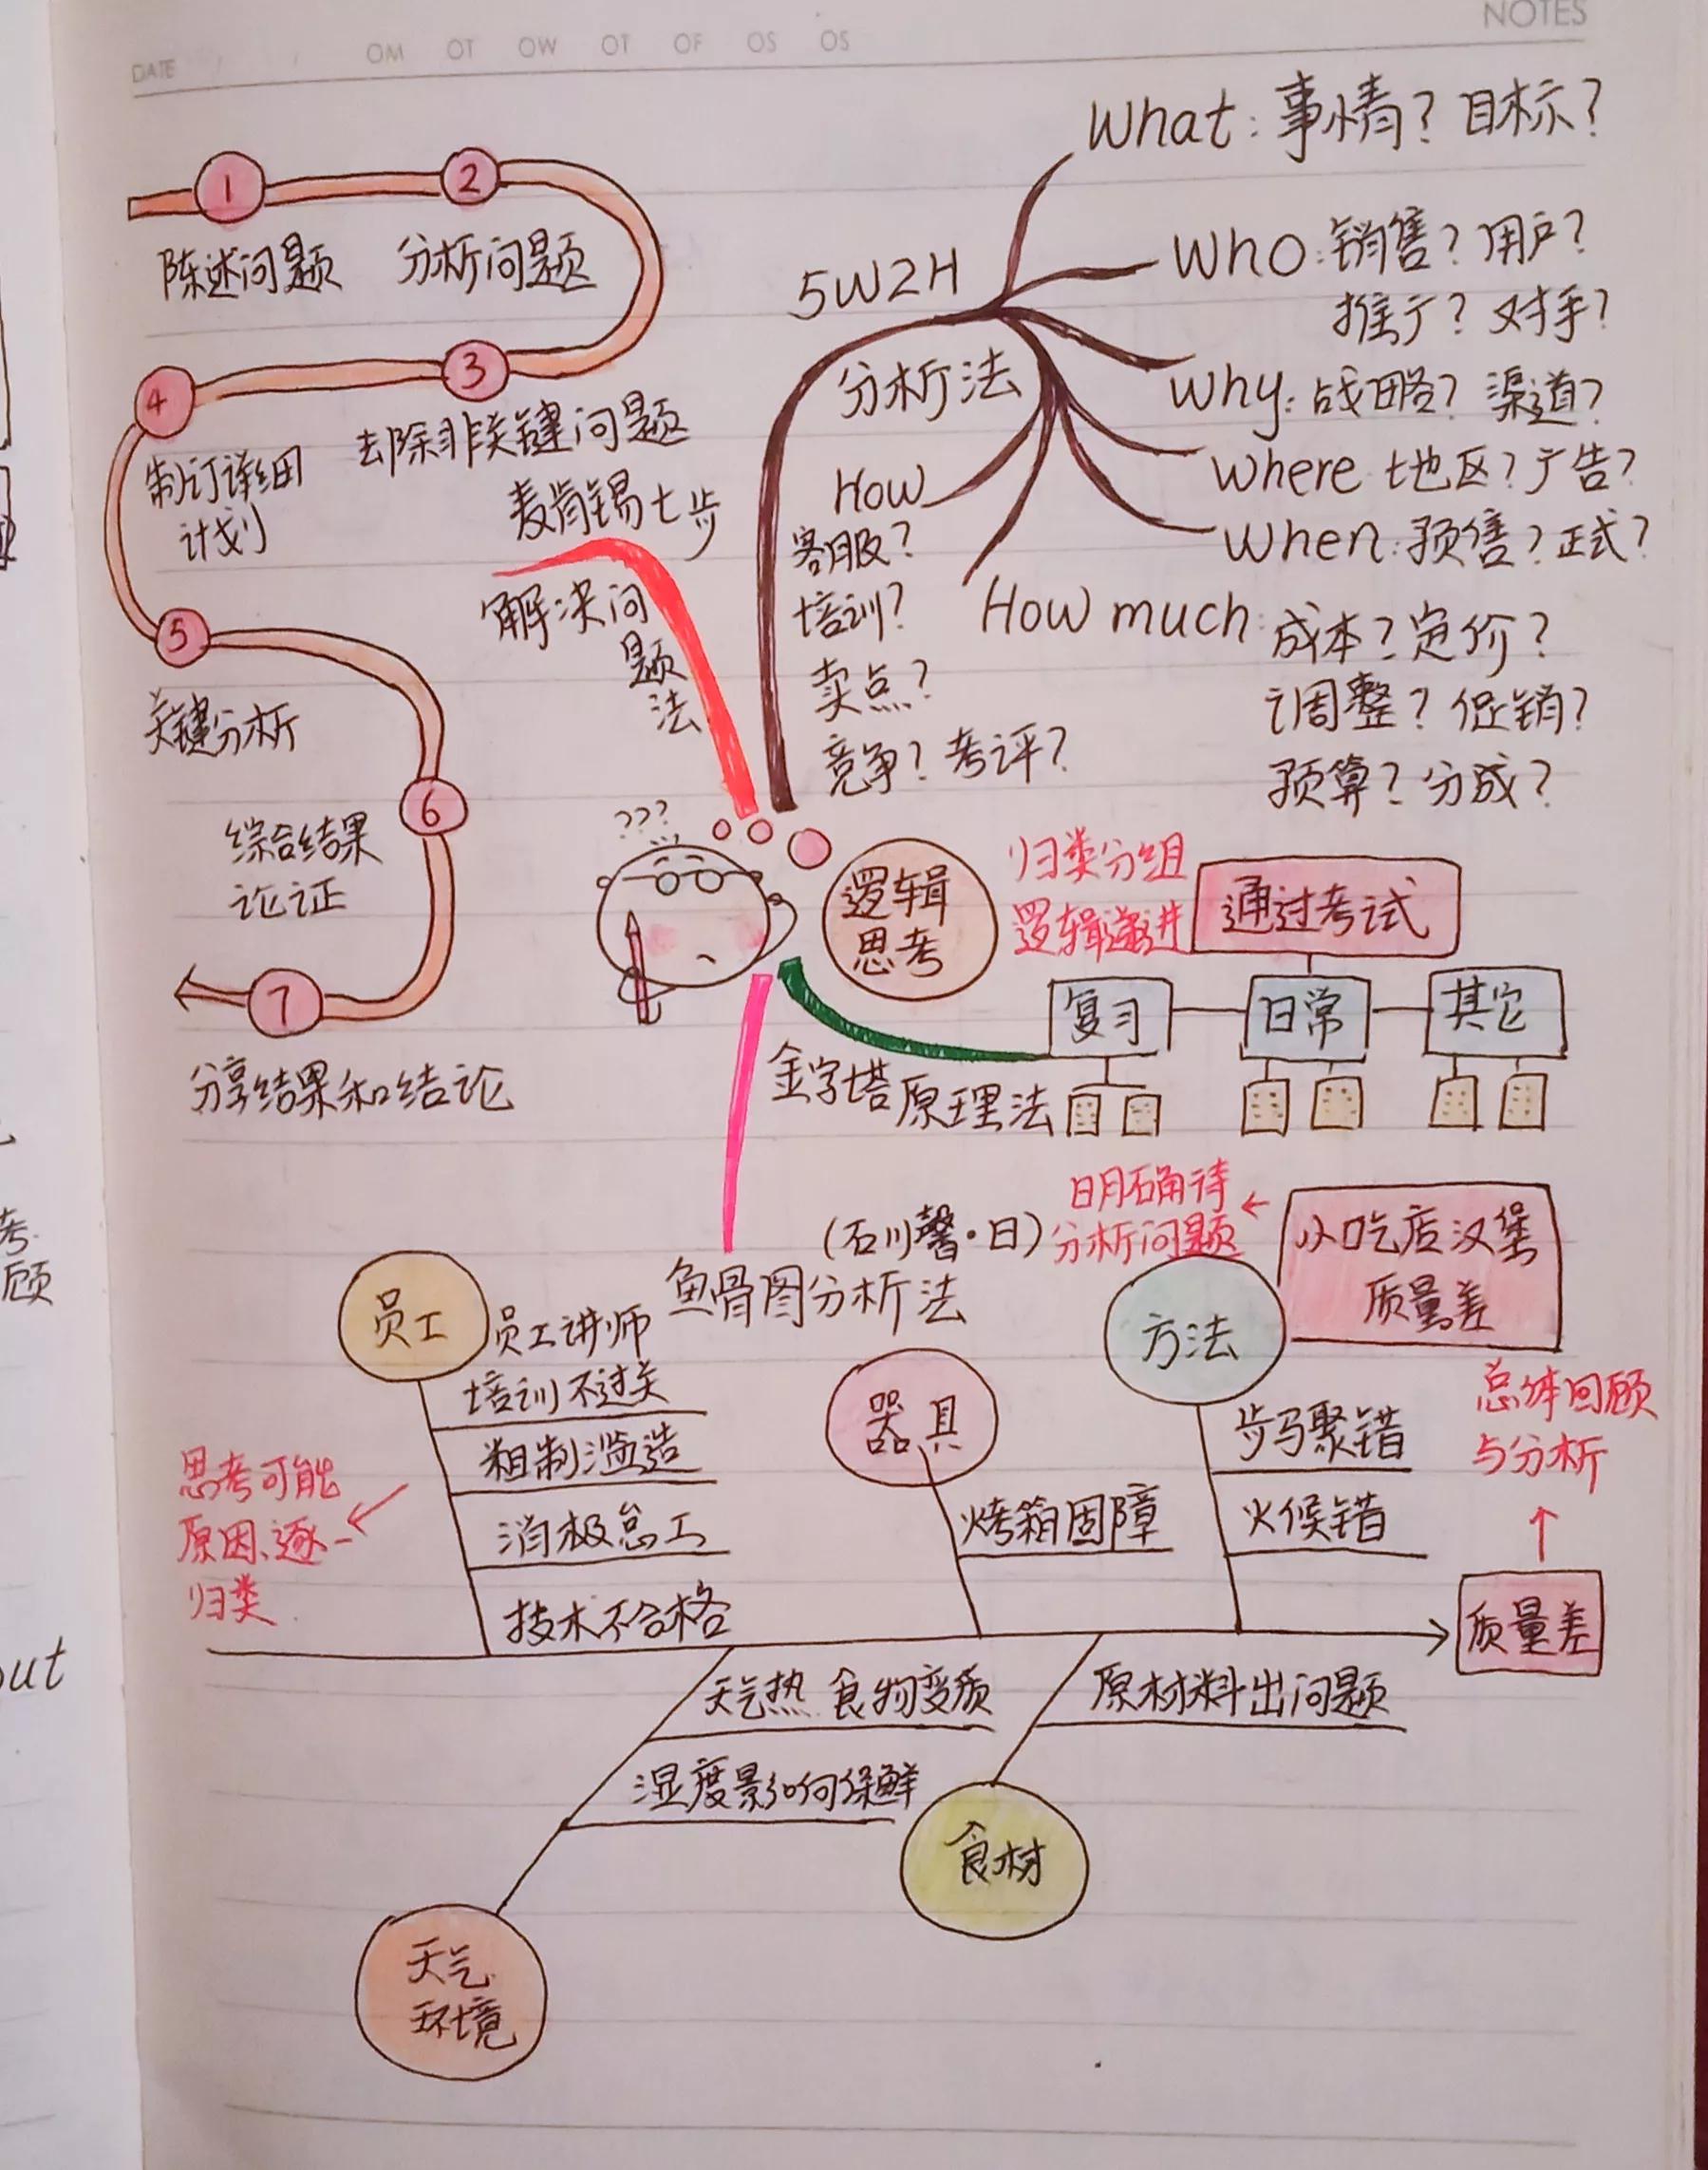 NOTES
DATE
OM OT OW OT OF OS OS
1
2
陈述问题
分析问题
3
4
去除非关键问题
制订详细
计划
5
关键分析
6
综合结果
论证
7
分享结果和结论
麦肯锡七步
解决问
题
法
5W2H
分析法
What: 事情? 目标?
Who: 销售? 用户?
推广? 对手?
Why: 战略? 渠道?
Where 地区? 广告?
When: 预售? 正式?
How much: 成本? 定价?
调整? 促销?
预算? 分成?
How
客服?
培训?
卖点?
竞争? 考评?
???
逻辑
思考
归类分组
逻辑递进
通过考试
复习
日常
其它
金字塔原理法
(石川馨·日)
鱼骨图分析法
明确待
分析问题
小吃店汉堡
质量差
员工
员工讲师
培训不过关
粗制滥造
消极怠工
技术不合格
思考可能
原因、逐一
归类
器具
烤箱固障
方法
步骤错
火候错
总体回顾
与分析
质量差
天气热 食物变质
湿度影响保鲜
天气
环境
原材料出问题
食材
考
顾
out